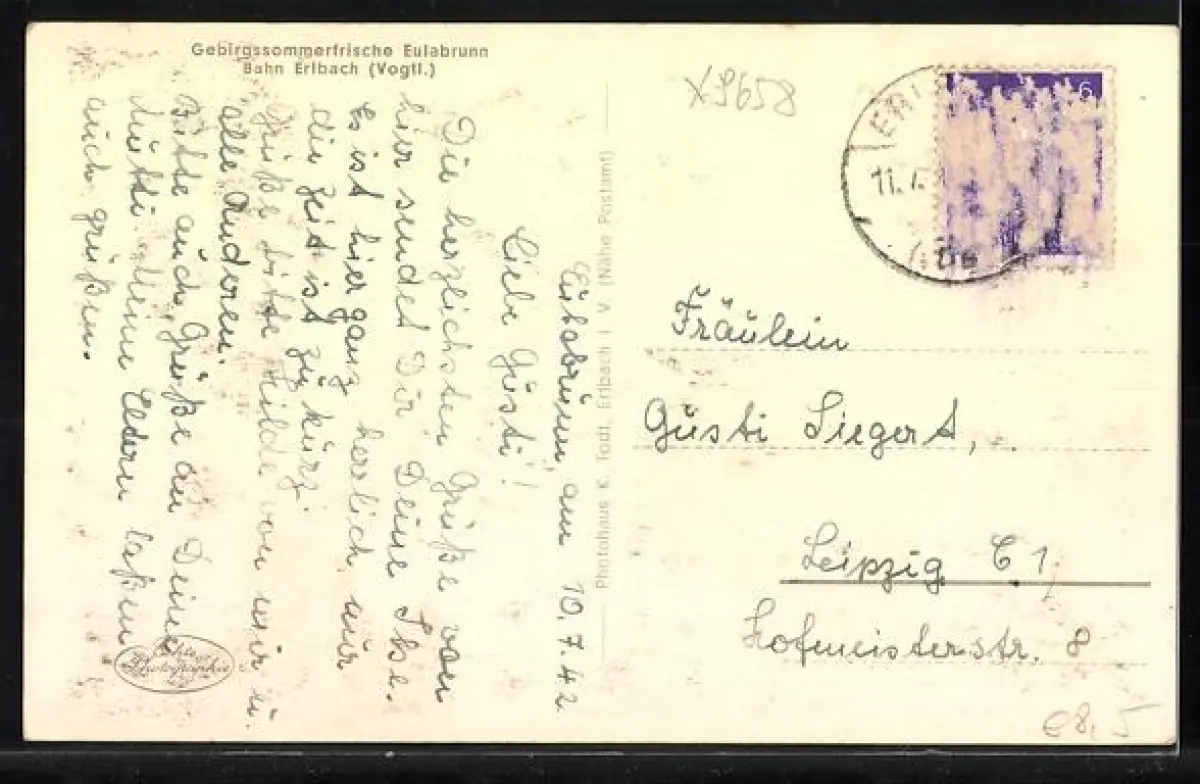 Gebirgssommerfrische Eulabrunn
Bahn Erlbach (Vogtl.)
XS658
6
ERL
11.7.
Eulabrunn, am 10.7.42
Liebe Gusti!
Die herzlichsten Grüße von
hier sendet Dir Deine Ilse.
Es ist hier ganz herrlich nur
die Zeit ist zu kurz.
Grüße bitte Hilde von mir u.
alle Anderen.
Bitte auch Grüße an Deine
Mutti. Meine Eltern laßen
auch grüßen.
Photohaus K. Todt, Erlbach i. V. (Nähe Postamt)
Fräulein
Gusti Siegert,
Leipzig C 1
Hofmeisterstr. 8
Echte
Photographie
€8,5